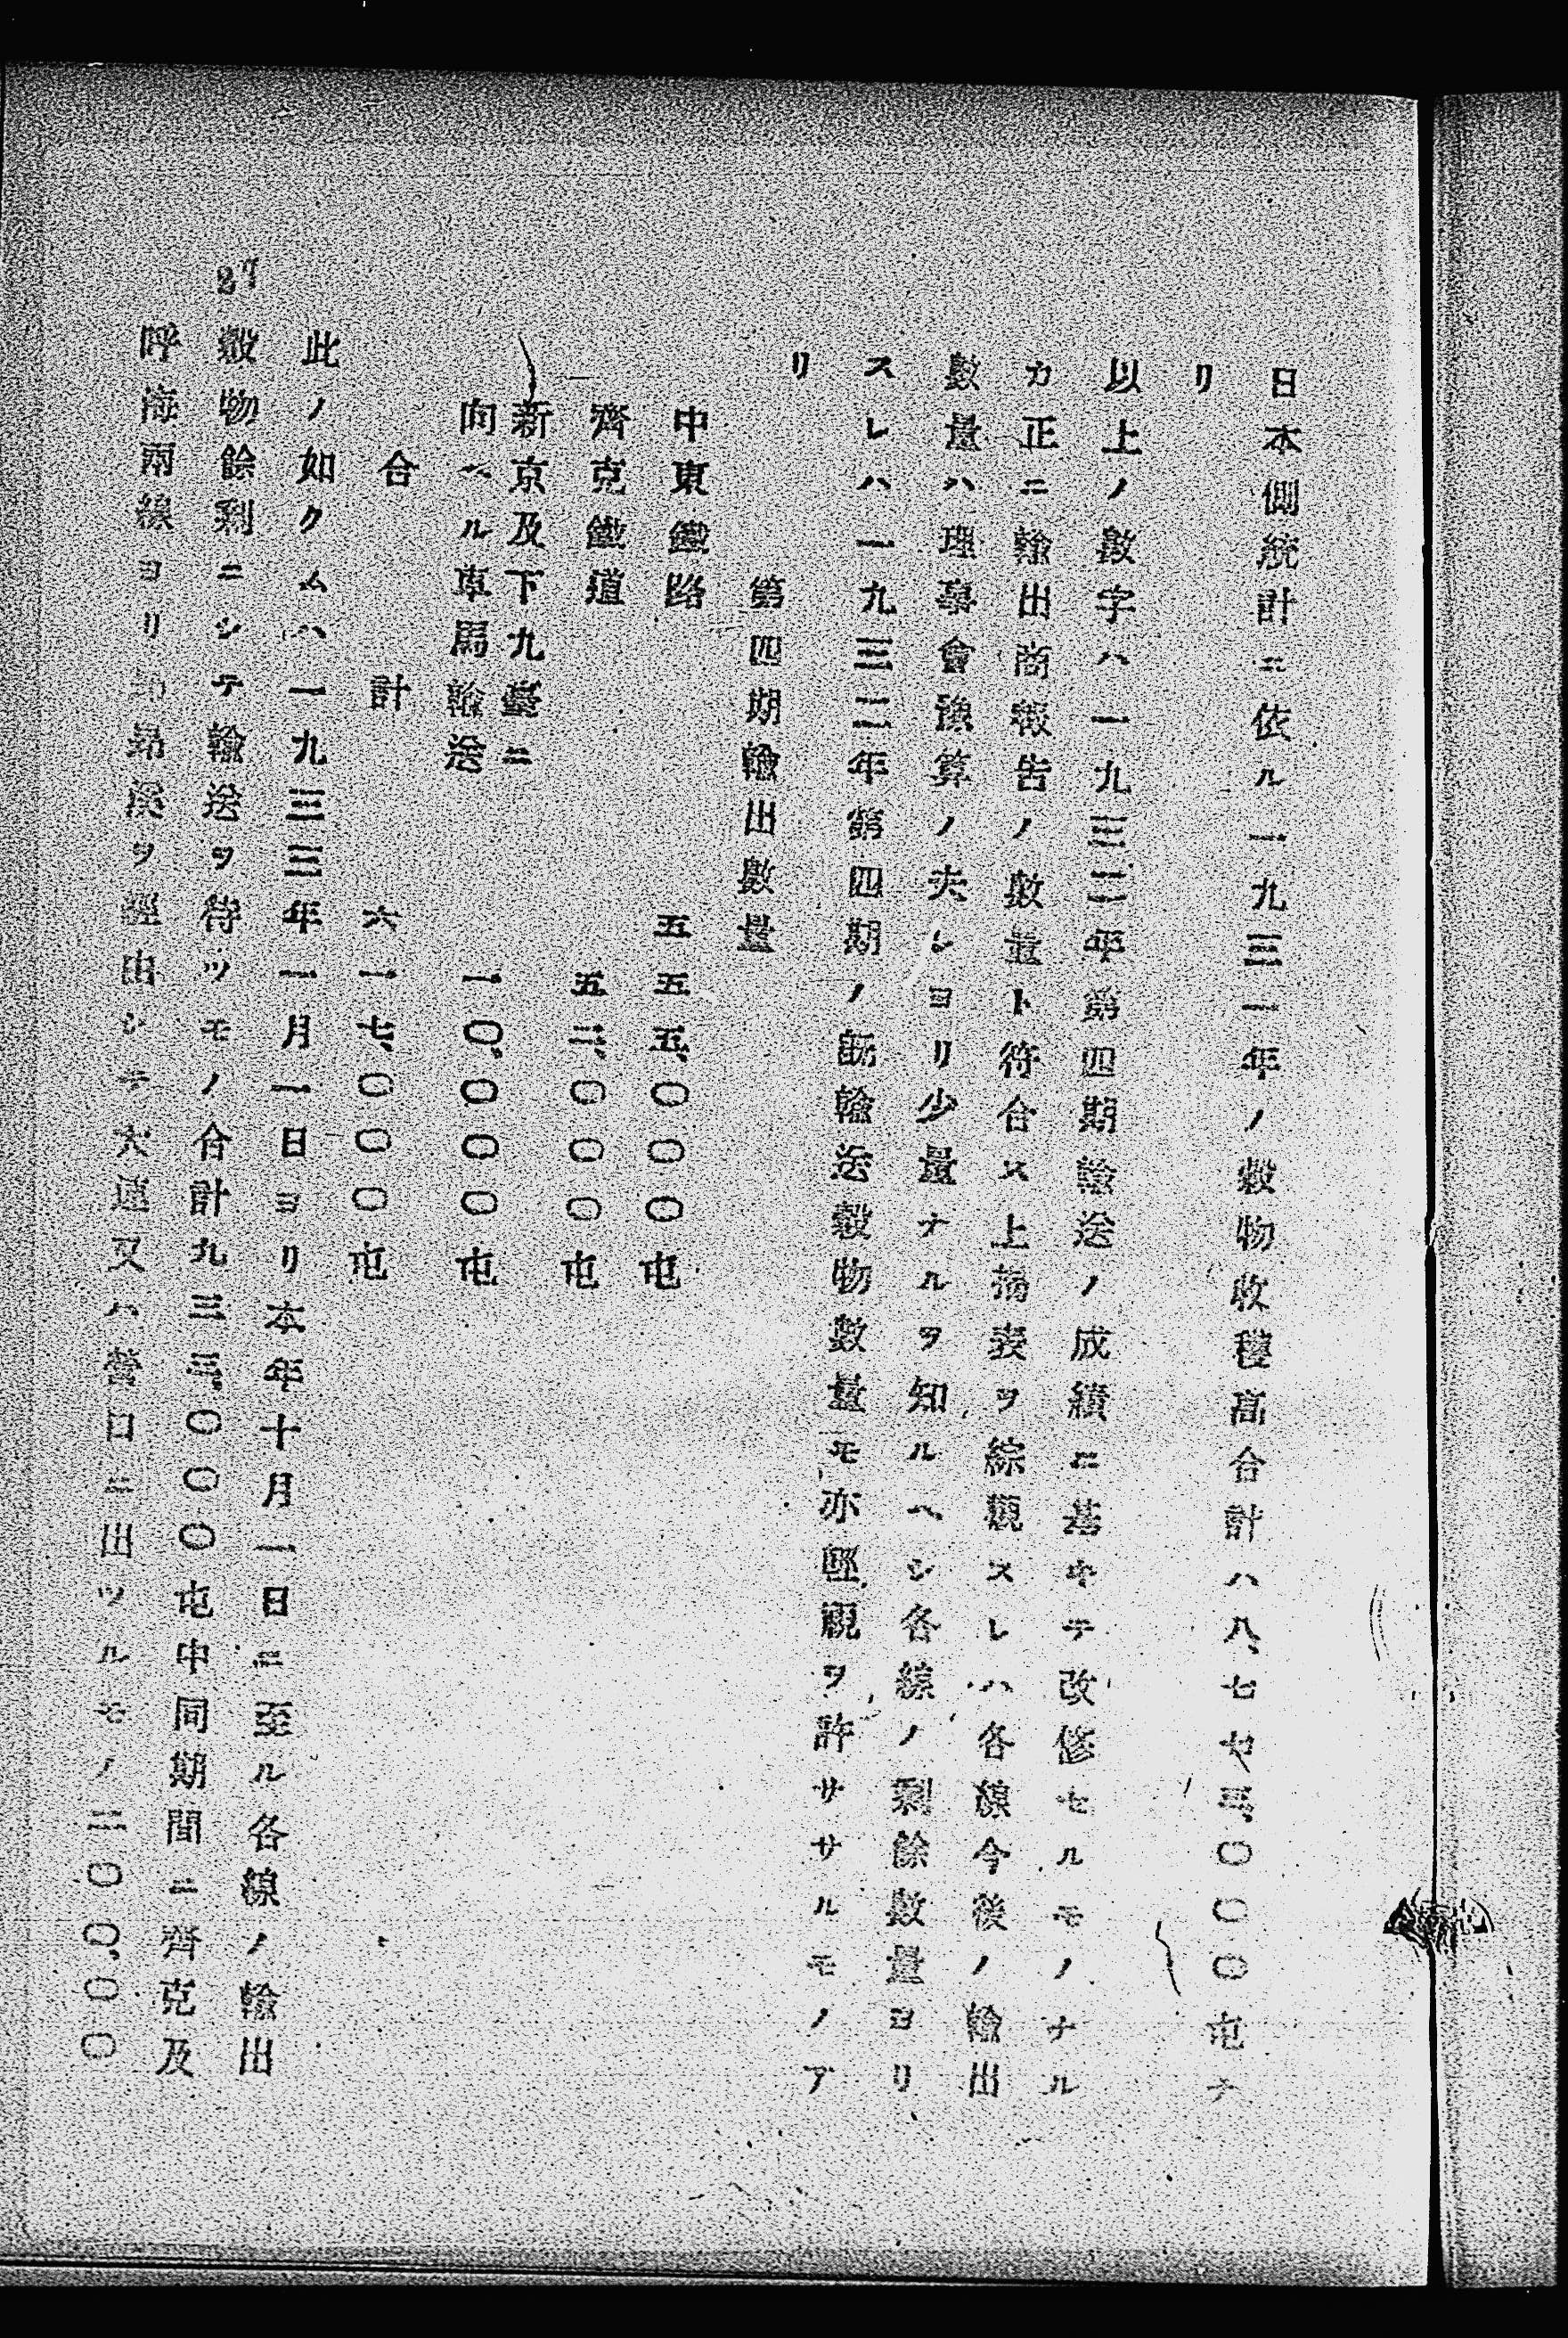 日本側統計ニ依ル一九三一年ノ穀物收穫高合計ハ八、七七三、〇〇〇屯ナ
リ
以上ノ數字ハ一九三二年第四期輸送ノ成績ニ基キテ改修セルモノナル
カ正ニ輸出商報告ノ數量ト符合ス上揭表ヲ綜觀スレハ各線今後ノ輸出
數量ハ理事會豫算ノ夫レヨリ少量ナルヲ知ルヘシ各線ノ剩餘數量ヨリ
スレハ一九三二年第四期ノ既輸送穀物數量モ亦輕視ヲ許ササルモノア
リ
第四期輸出數量
中東鐵路 五五五、〇〇〇屯
齊克鐵道 五二、〇〇〇屯
新京及下九臺ニ
向ヘル車馬輸送 一〇、〇〇〇屯
合計 六一七、〇〇〇屯
此ノ如クムハ一九三三年一月一日ヨリ本年十月一日ニ至ル各線ノ輸出
穀物餘剩ニシテ輸送ヲ待ツモノ合計九三三、〇〇〇屯中同期間ニ齊克及
呼海兩線ヨリ昂昂溪ヲ經由シテ大連又ハ營口ニ出ツルモノ二〇〇、〇〇
27